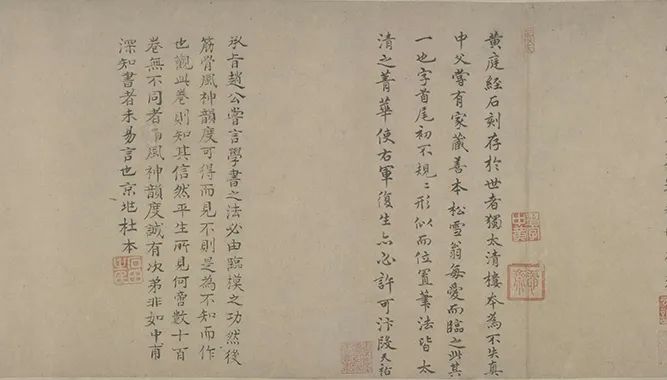 黄庭經石刻存於世者獨太清樓本為不失真
中父嘗有家藏善本松雪翁每愛而臨之此其
一也字首尾初不規〻形似而位置筆法皆太
清之菁華使右軍復生亦必許可汴段天祐
承旨趙公嘗言學書之法必由臨模之功然後
筋骨風神韻度可得而見不則是為不知而作
也觀此卷則知其信然平生所見何啻數十百
卷無不同者而風神韻度誠有次第非如中甫
深知書者未易言也京兆杜本